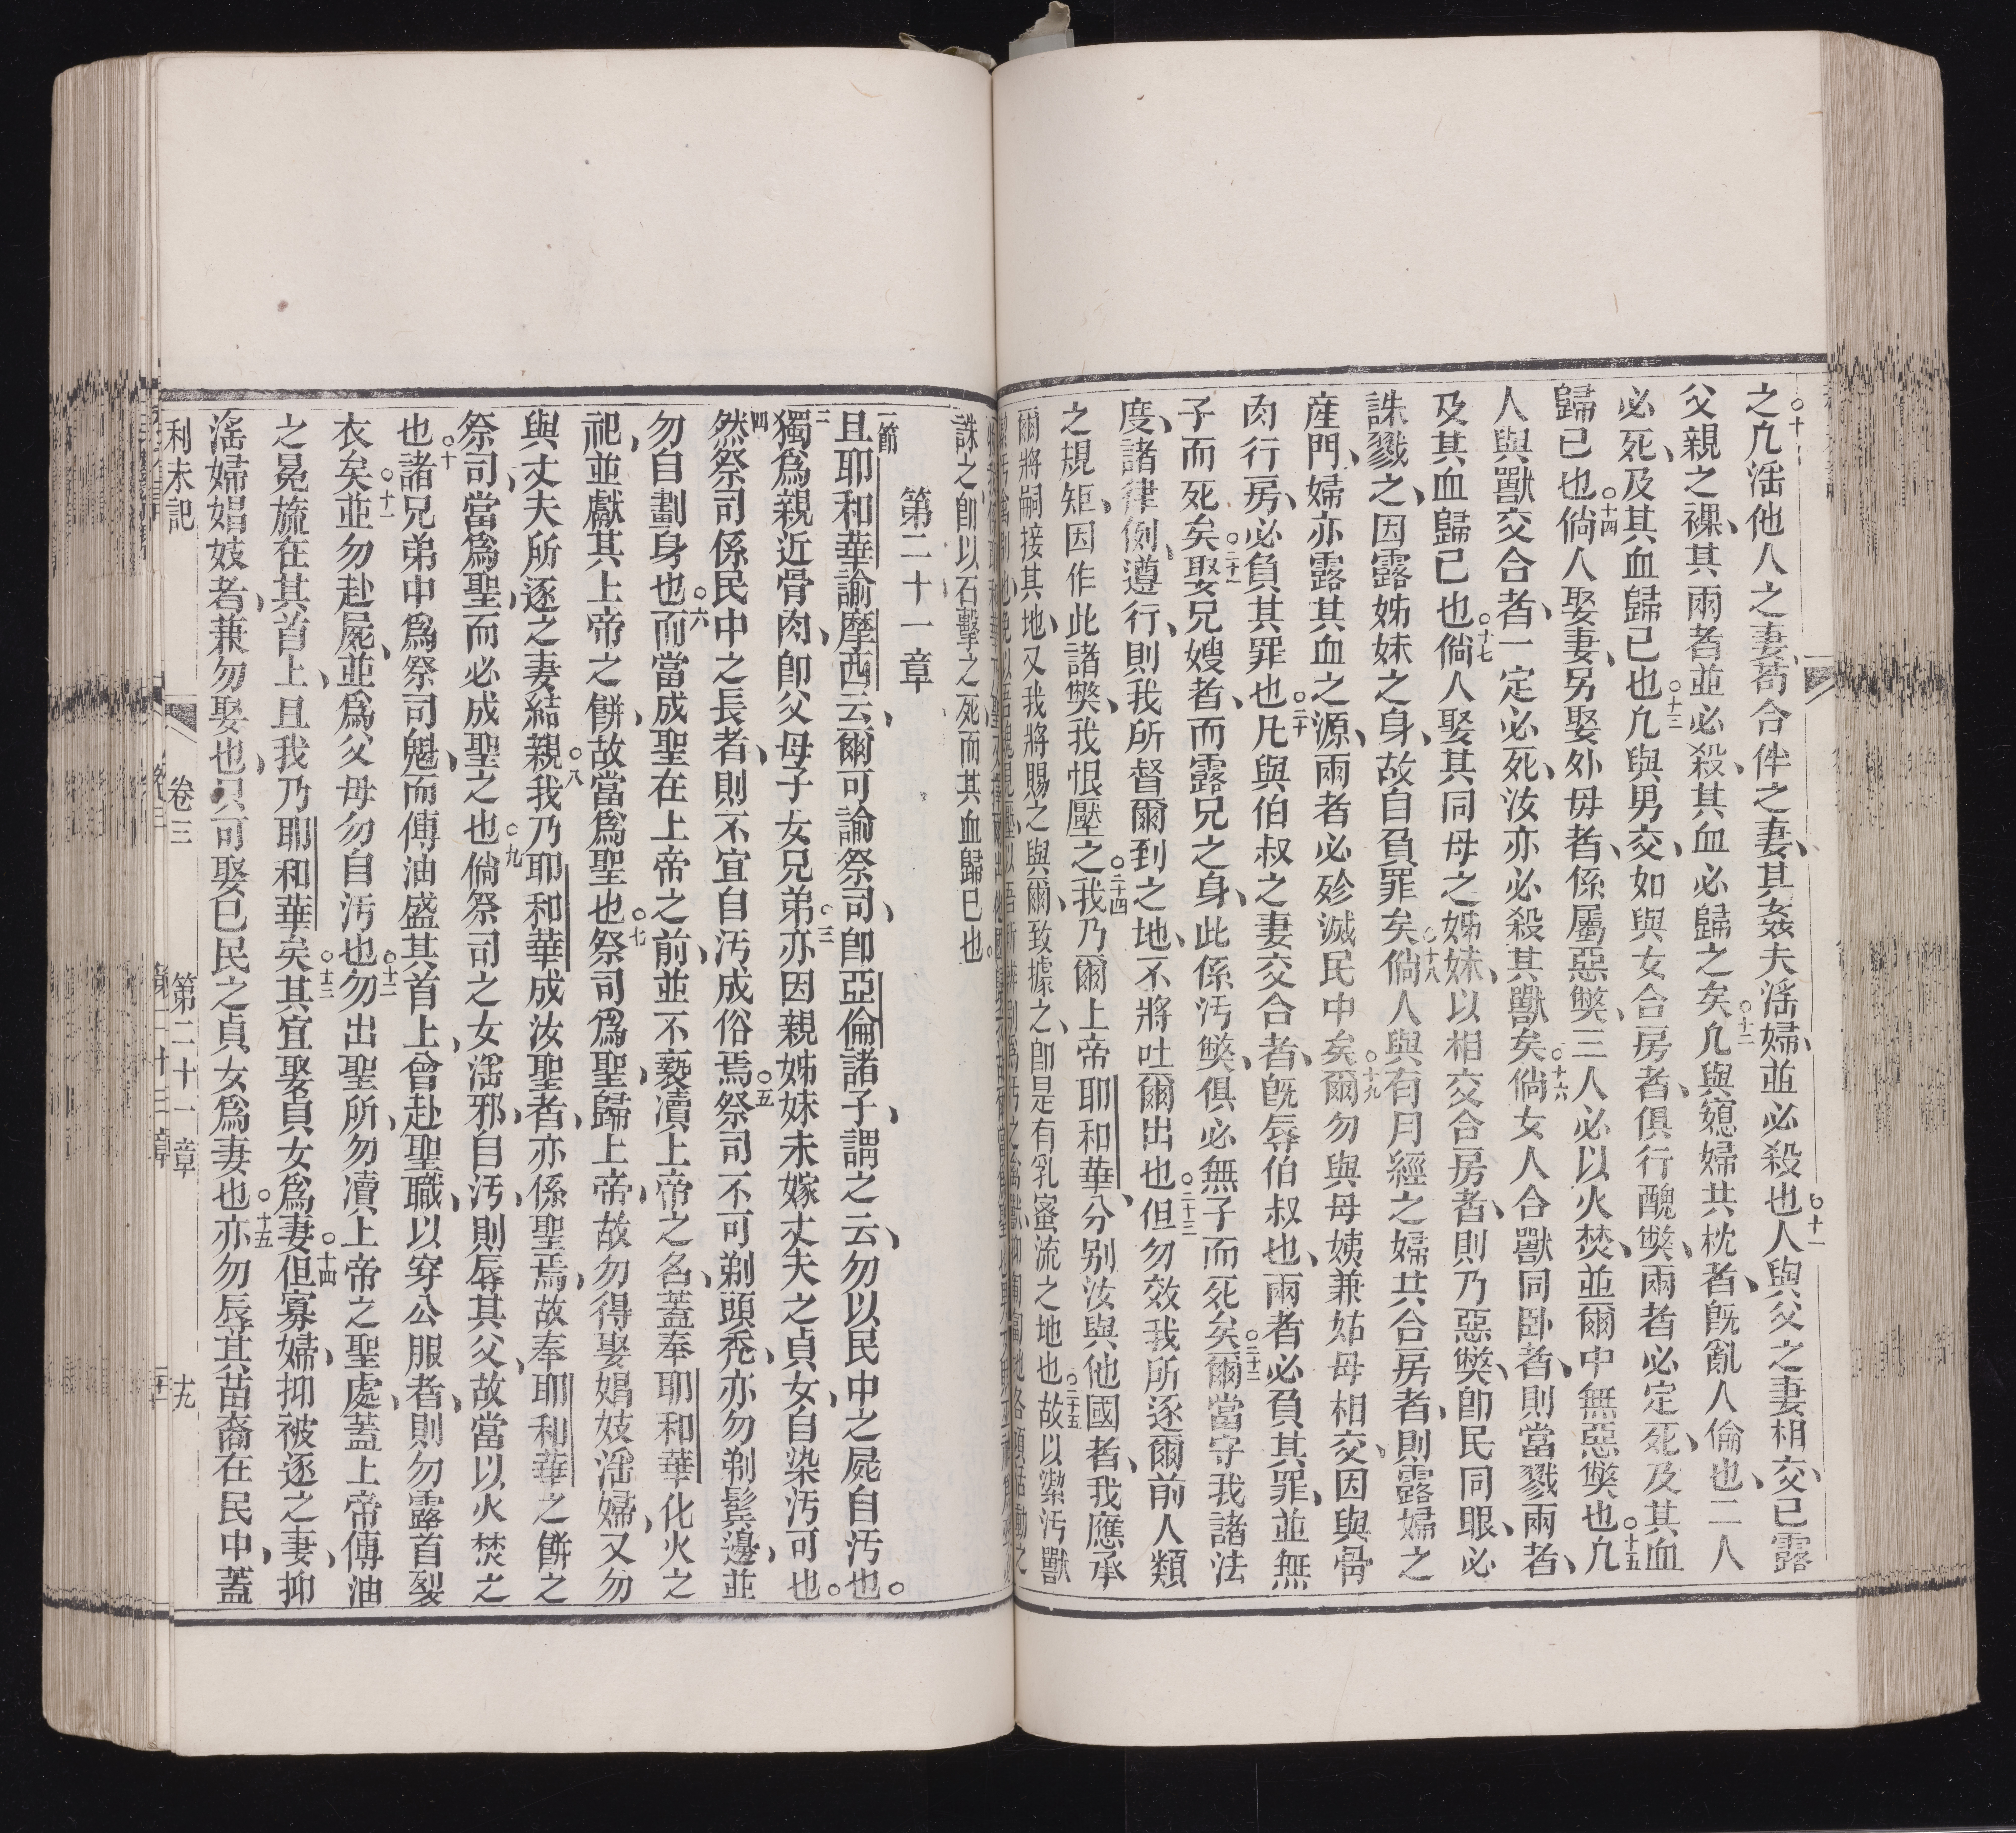 之凢滛他人之妻、苟合伴之妻、其姦夫滛婦、並必殺也○十一人與父之妻相交、已露
父親之裸、其兩者並必殺、其血必歸之矣○十二凢與媳婦共枕者、旣亂人倫也、二人
必死、及其血歸已也○十三凢與男交、如與女合房者、俱行醜獘、兩者必定死、及其血
歸已也○十四倘人娶妻、另娶外母者、係屬惡獘、三人必以火焚、並爾中無惡獘也○十五凢
人與獸交合者、一定必死、汝亦必殺其獸矣○十六倘女人合獸同卧者、則當戮兩者、
及其血歸己也○十七倘人娶其同母之姊妹、以相交合房者、則乃惡獘、卽民同眼、必
誅戮之、因露姊妹之身、故自負罪矣○十八倘人與有月經之婦共合房者、則露婦之
産門、婦亦露其血之源、兩者必殄滅民中矣○十九爾勿與母姨兼姑母相交、因與骨
肉行房、必負其罪也○二十凡與伯叔之妻交合者、旣辱伯叔也、兩者必負其罪、並無
子而死矣○二十一娶兄嫂者、而露兄之身、此係汚獘、俱必無子而死矣○二十二爾當守我諸法
度、諸律例、遵行、則我所督爾到之地、不將吐爾出也○二十三但勿效我所逐爾前人類
之規矩、因作此諸獘、我恨壓之○二十四我乃爾上帝耶和華、分別汝與他國者、我應承
爾將嗣接其地、又我將賜之與爾、致據之、卽是有乳蜜流之地也○二十五故以潔汚獸
誅之、卽以石擊之死、而其血歸巳也。
第二十一章
一節且耶和華諭摩西云、爾可諭祭司、卽亞倫諸子、謂之云、勿以民中之屍自汚也。
二獨爲親近骨肉、卽父母子女兄弟○三亦因親姊妹未嫁丈夫之貞女、自染汚可也。
四然祭司係民中之長者、則不宜自汚成俗焉○五祭司不可剃頭禿、亦勿剃鬂邊、並
勿自劃身也○六而當成聖在上帝之前、並不褻瀆上帝之名、蓋奉耶和華化火之
祀、並獻其上帝之餅、故當爲聖也○七祭司爲聖歸上帝、故勿得娶娼妓滛婦、又勿
與丈夫所逐之妻結親○八我乃耶和華成汝聖者、亦係聖焉、故奉耶和華之餅之
祭司、當爲聖、而必成聖之也○九倘祭司之女滛邪、自汚、則辱其父、故當以火焚之
也○十諸兄弟中爲祭司魁、而傅油盛其首上、曾赴聖職、以穿公服者、則勿露首裂
衣矣○十一並勿赴屍、並爲父母勿自汚也○十二勿出聖所、勿瀆上帝之聖處、蓋上帝傅油
之冕旒在其首上、且我乃耶和華矣○十三其宜娶貞女爲妻○十四但寡婦、抑被逐之妻、抑
滛婦娼妓者、兼勿娶也、只可娶已民之貞女爲妻也○十五亦勿辱其苗裔在民中、蓋
利未記　卷三　第二十一章　十九